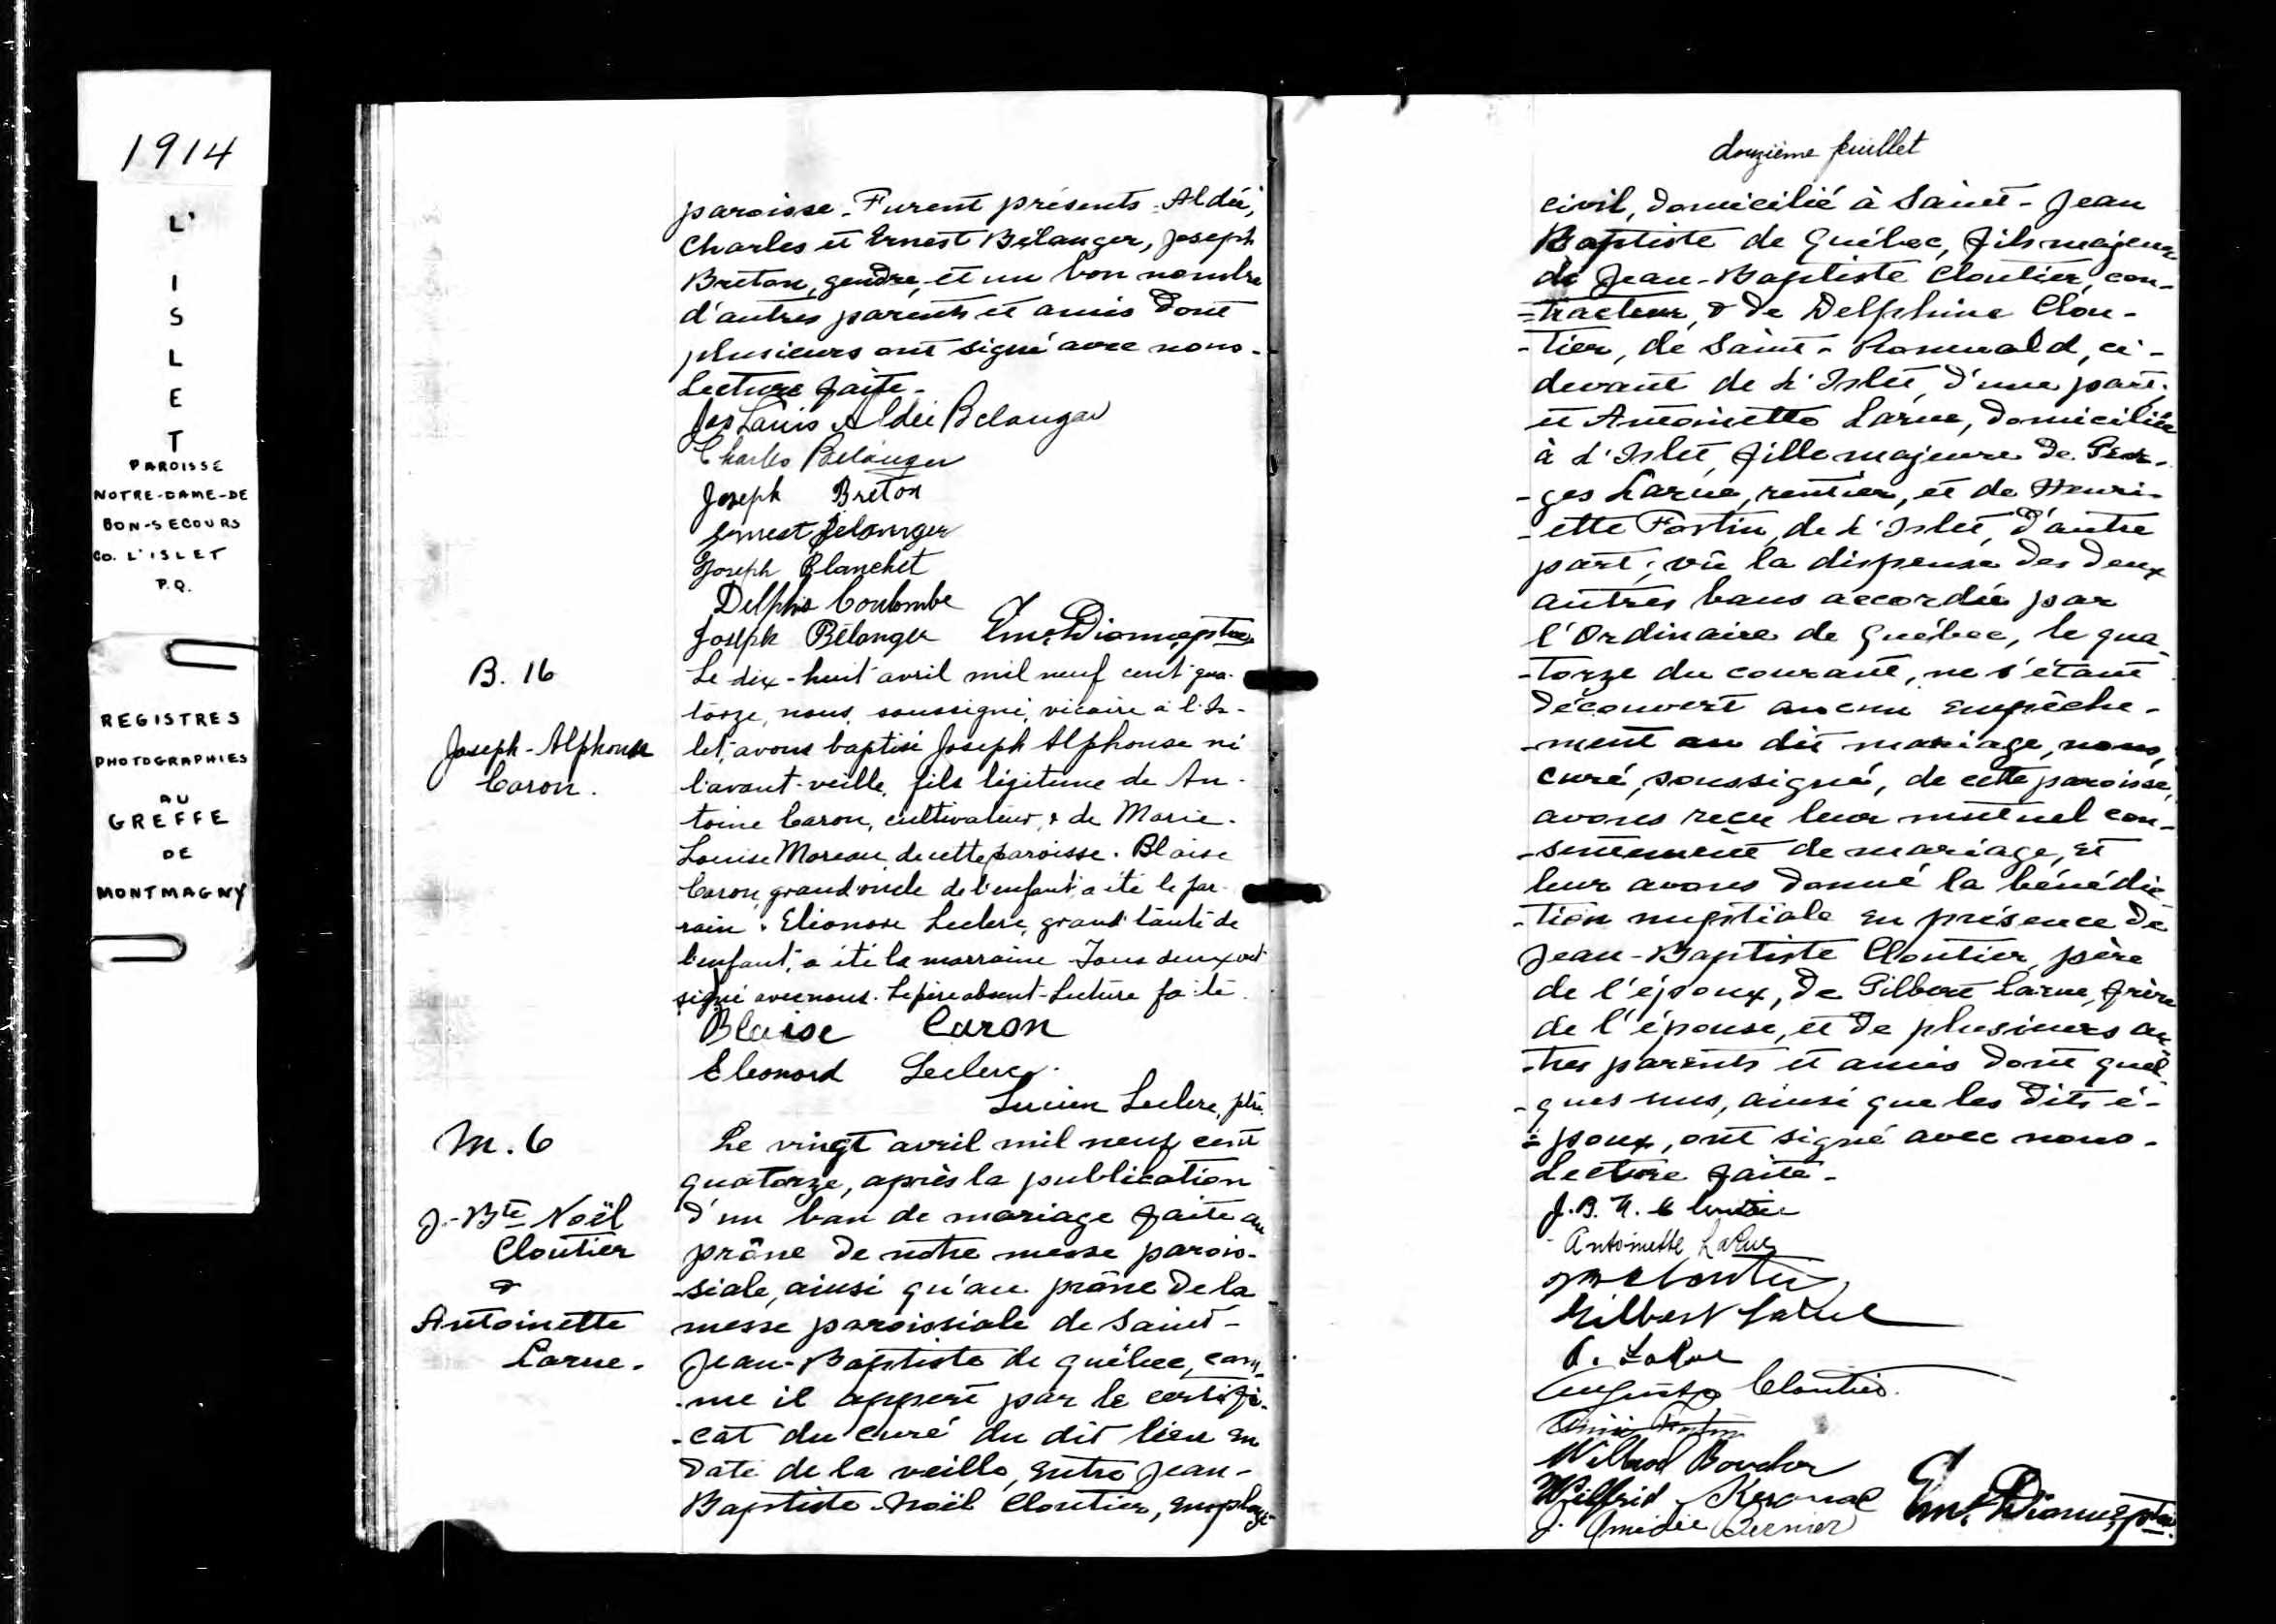 1914
L'
I
S
L
E
T
PAROISSE
NOTRE-DAME-DE
BON-SECOURS
CO. L'ISLET
P.Q.
REGISTRES
PHOTOGRAPHIES
AU
GREFFE
DE
MONTMAGNY
paroisse. Furent présents Aldéi,
Charles et Ernest Bélanger, Joseph
Breton, gendre, et un bon nombre
d'autres parents et amis dont
plusieurs ont signé avec nous.
Lecture faite.
Jos Louis Aldéi Belanger
Charles Bélanger
Joseph Breton
Ernest Belanger
Joseph Blanchet
Delphis Coulombe
Joseph Bélanger Em. Dionne, ptre
B. 16
Joseph-Alphonse
Caron.
Le dix-huit avril mil neuf cent qua-
torze, nous, soussigné, vicaire à l'Is-
let, avons baptisé Joseph Alphonse né
l'avant-veille, fils légitime de An-
toine Caron, cultivateur, & de Marie-
Louise Moreau de cette paroisse. Blaise
Caron, grand oncle de l'enfant, a été le par-
rain & Elionore Leclerc, grand'tante de
l'enfant, a été la marraine Tous deux ont
signé avec nous. Le père absent. Lecture faite.
Blaise Caron
Eleonord Leclerc.
Lucien Leclerc, ptre.
M. 6
J.-Bte Noël
Cloutier
&
Antoinette
Larue.
Le vingt avril mil neuf cent
quatorze, après la publication
d'un ban de mariage faite au
prône de notre messe parois-
-siale, ainsi qu'au prône de la
messe paroissiale de Saint-
Jean-Baptiste de Québec, com-
-me il appert par le certifi-
-cat du curé du dit lieu en
date de la veille, entre Jean-
Baptiste-Noël Cloutier, employé
douzième feuillet
civil, domicilié à Saint-Jean
Baptiste de Québec, fils majeur
de Jean-Baptiste Cloutier, con-
-tracteur, & de Delphine Clou-
-tier, de Saint-Romuald, ci-
devant de L'Islet, d'une part;
et Antoinette Larue, domiciliée
à L'Islet, fille majeure de Geor-
-ges Larue, rentier, et de Henri-
-ette Fortin, de L'Islet, d'autre
part; vû la dispense des deux
autres bans accordée par
l'Ordinaire de Québec, le qua-
-torze du courant, ne s'étant
découvert aucun empêche-
-ment au dit mariage, nous,
curé, soussigné, de cette paroisse,
avons reçu leur mutuel con-
-sentement de mariage, et
leur avons donné la bénédic
-tion nuptiale en présence de
Jean-Baptiste Cloutier, père
de l'époux, de Gilbert Larue, frère
de l'épouse, et de plusieurs au
-tres parents et amis dont quel-
-ques uns, ainsi que les dits é-
-poux, ont signé avec nous.
Lecture faite.
J.B.N. Cloutier
Antoinette LaRue
JB Cloutier
Gilbert LaRue
LaRue
Cloutier.
Fortin
Wilbrod Boucher
Wilfrid
J. Amédée Bernier Em. Dionne, ptre.